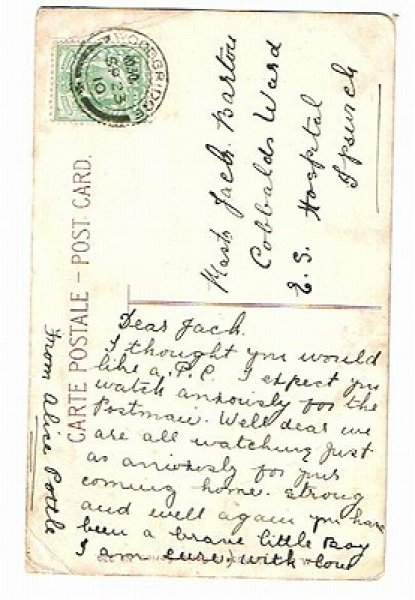 WOODBRIDGE
SP 23
10
CARTE POSTALE – POST CARD.
Mastr Jack Barton
Cobbalds Ward
E.S. Hospital
Ipswich
Dear Jack.
I thought you would
like a P.C. I expect you
watch anxiously for the
Postman. Well dear we
are all watching just
as anxiously for your
coming home. strong
and well again you have
been a brave little Boy
I am sure, with love
from Alice Pottle